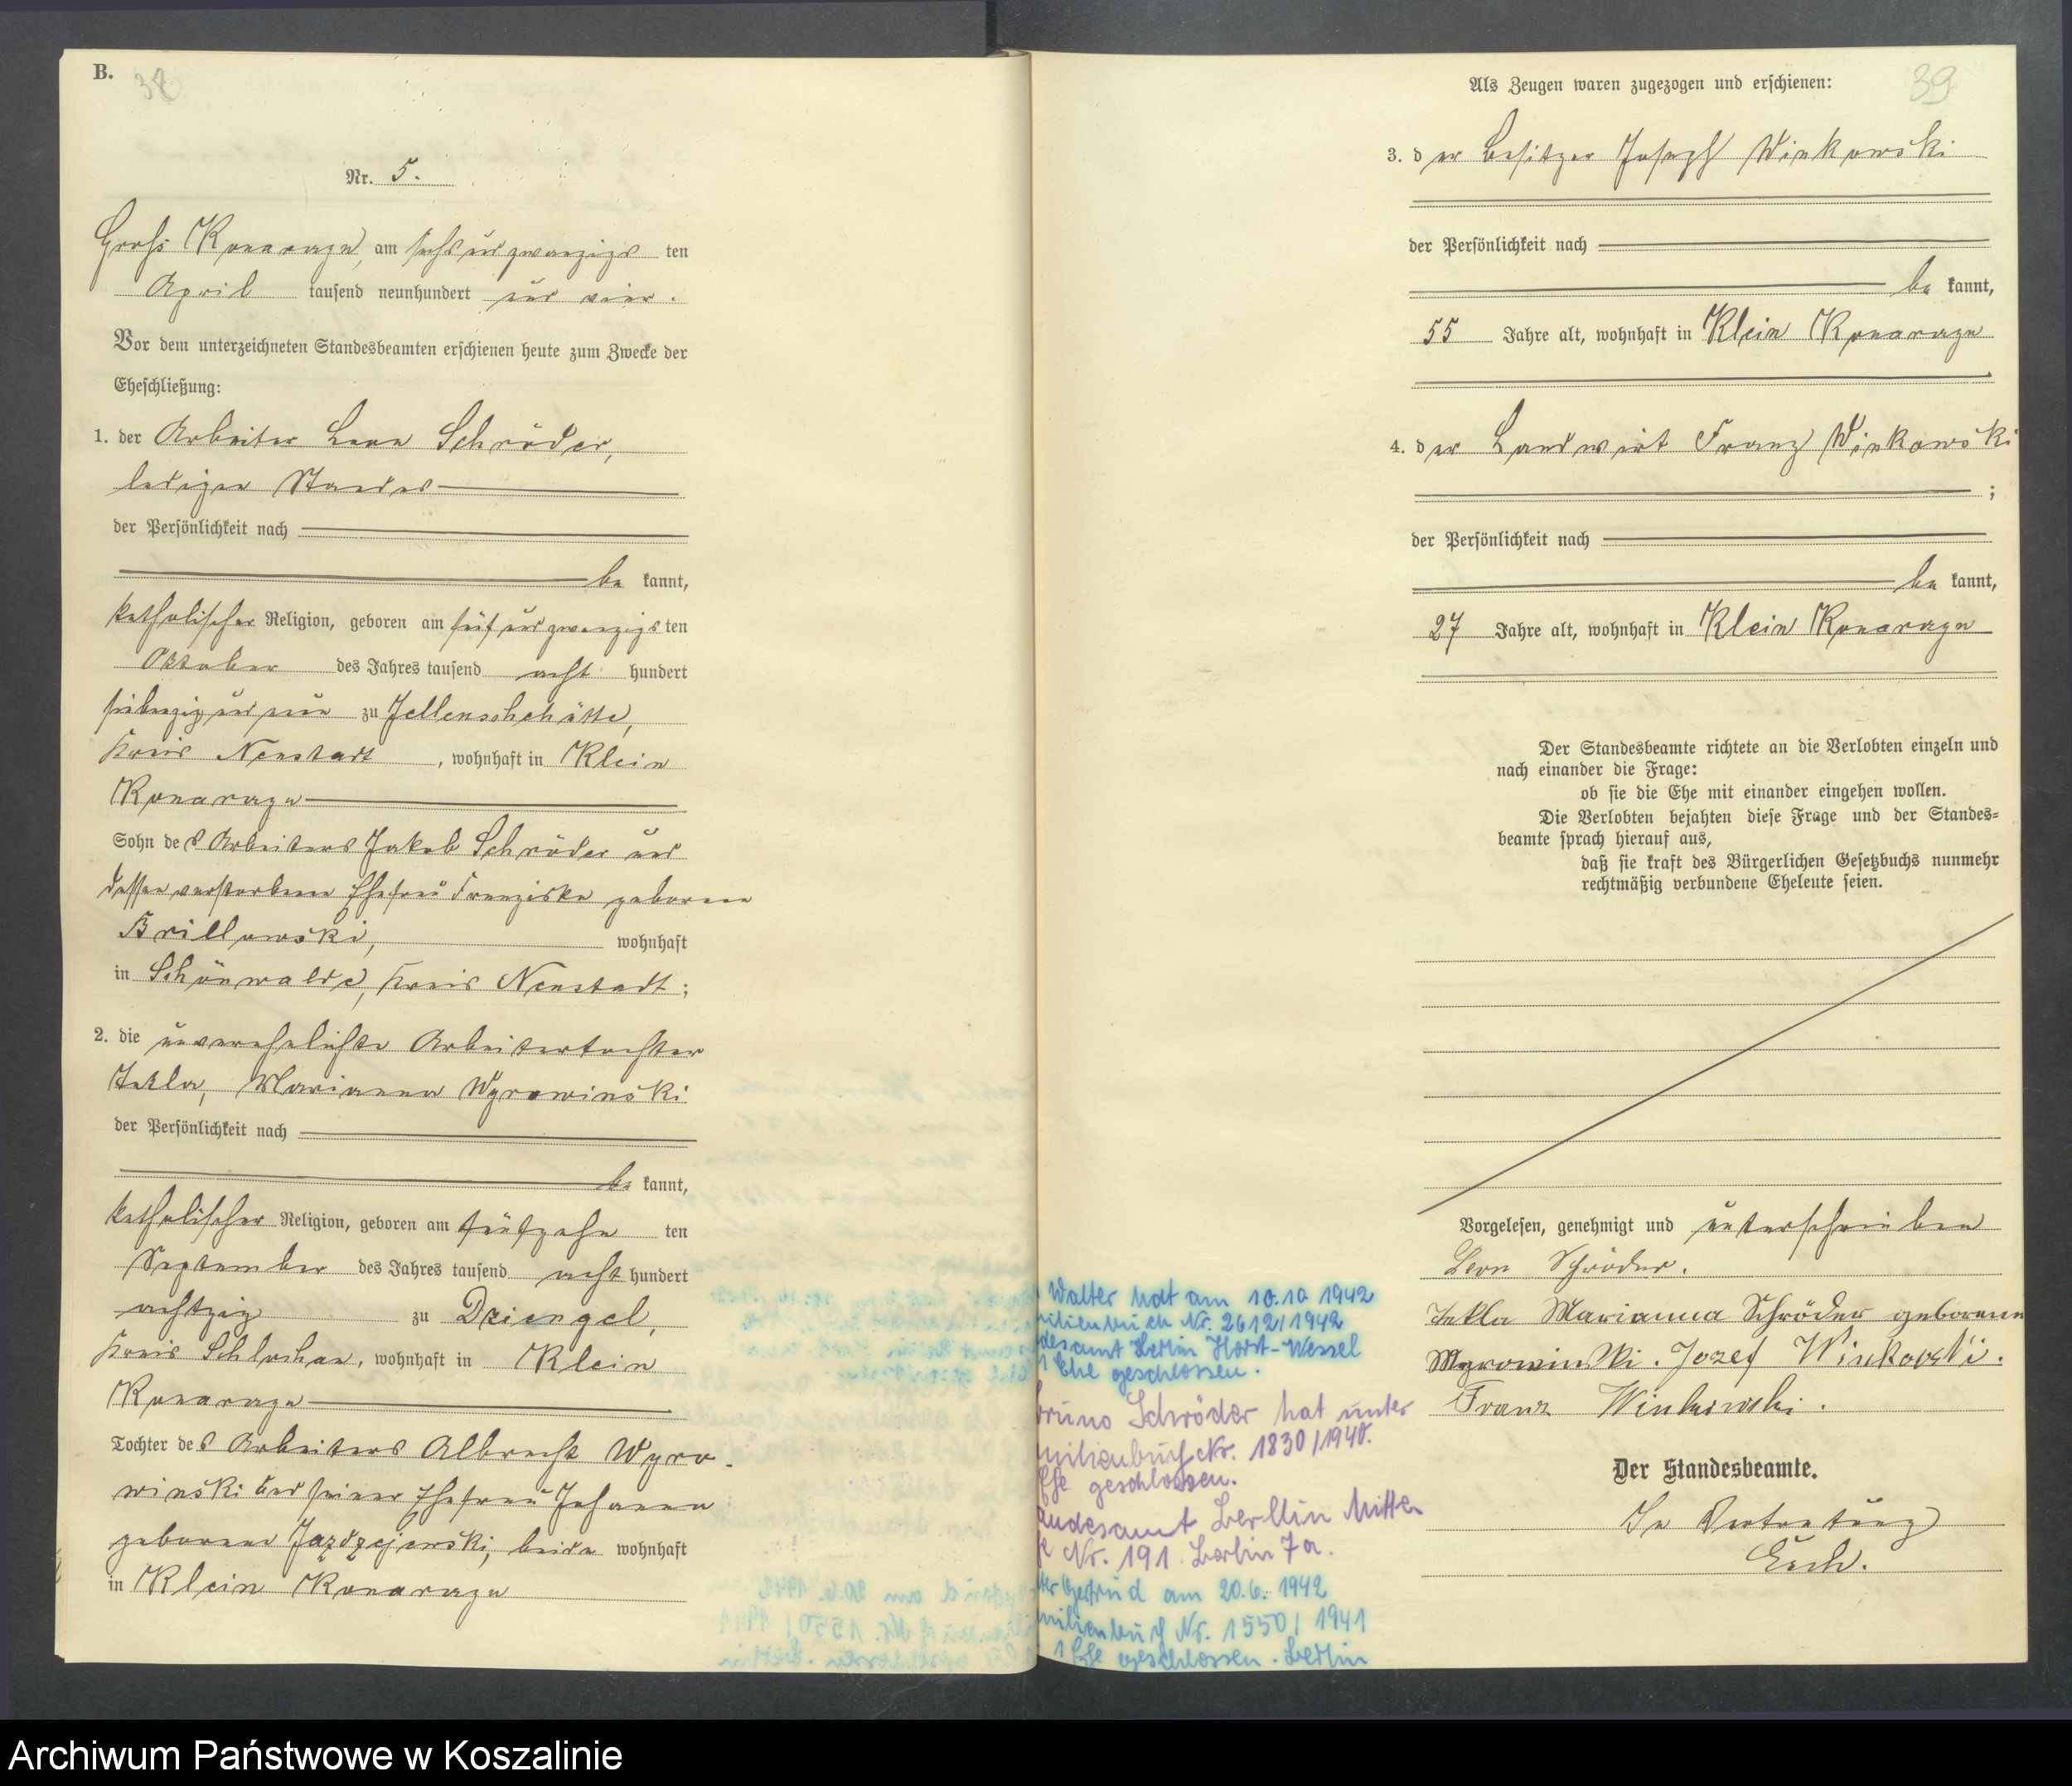 B.
38
Nr. 5.
Groß Konarzyn, am sechsundzwanzigsten
April tausend neunhundert und vier.
Vor dem unterzeichneten Standesbeamten erschienen heute zum Zwecke der
Eheschließung:
1. der Arbeiter Leon Schröder,
ledigen Standes
der Persönlichkeit nach
be kannt,
katholischer Religion, geboren am fünfundzwanzigsten
Oktober des Jahres tausend acht hundert
siebenzig und neun zu Jellenschehütte,
Kreis Neustadt, wohnhaft in Klein
Konarzyn
Sohn des Arbeiters Jakob Schröder und
dessen verstorbenen Ehefrau Franziska geborene
Brillowski, wohnhaft
in Schönwalde, Kreis Neustadt;
2. die unverehelichte Arbeitertochter
Tekla, Marianna Wyrowinski
der Persönlichkeit nach
be kannt,
katholischer Religion, geboren am fünfzehn ten
September des Jahres tausend acht hundert
achtzig zu Dziengel,
Kreis Schlochau, wohnhaft in Klein
Konarzyn
Tochter des Arbeiters Albrecht Wyro-
winski und seiner Ehefrau Johanna
geborene Jazdzejewski, beide wohnhaft
in Klein Konarzyn
39
Als Zeugen waren zugezogen und erschienen:
3. der Besitzer Joseph Winkowski
der Persönlichkeit nach
be kannt,
55 Jahre alt, wohnhaft in Klein Konarzyn
4. der Landwirt Franz Winkowski
;
der Persönlichkeit nach
be kannt,
27 Jahre alt, wohnhaft in Klein Konarzyn
Der Standesbeamte richtete an die Verlobten einzeln und
nach einander die Frage:
ob sie die Ehe mit einander eingehen wollen.
Die Verlobten bejahten diese Frage und der Standes-
beamte sprach hierauf aus,
daß sie kraft des Bürgerlichen Gesetzbuchs nunmehr
rechtmäßig verbundene Eheleute seien.
Vorgelesen, genehmigt und unterschrieben
Leon Schröder.
Tekla Marianna Schröder geborene
Wyrowinski. Jozef Winkowski.
Franz Winkowski.
Der Standesbeamte.
In Vertretung
Walter hat am 10.10 1942
ilienbuch Nr. 2612/1942
desamt Berlin Horst-Wessel
1 Ehe geschlossen.
Bruno Schröder hat unter
milienbuch Nr. 1830/1940.
Ehe geschlossen.
andesamt Berlin Mitte
Nr. 191. Berlin 7a.
ter Gertrud am 20.6. 1942
milienbuch Nr. 1550/1941
1 Ehe geschlossen. Berlin
Archiwum Państwowe w Koszalinie